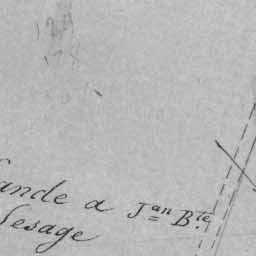 ande a Jan Bte
Lesage